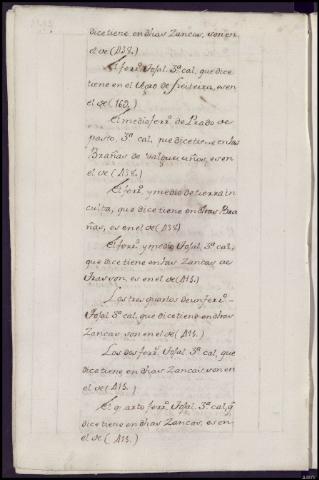 dice tiene en dhas Zancas, son en
el de (A38.)
El ferr.º Tojal. 3.ª cal, que dice
tiene en el Agro de
en el de (160.)
El medio ferr.º de Prado de
pasto, 3.ª cal, que dice tiene en las
Brañas de es en
el de (A38.)
El ferr.º y medio de tierra in
culta, que dice tiene en dhas Bra
ñas, es en el de (A38)
El ferr.º y medio Tojal 3.ª cal,
que dice tiene en las Zancas de
es en el de (A15.)
Los tres quartos de un ferr.º
Tojal 3.ª cal, que dice tiene en dhas
Zancas son en el de (A15.)
Los dos ferr.s Tojal. 3.ª cal, que
dice tiene en dhas Zancas son en
el de (A15.)
El quarto ferr.º Tojal. 3.ª cal, q
dice tiene en dhas Zancas, es en
el de (A15.)